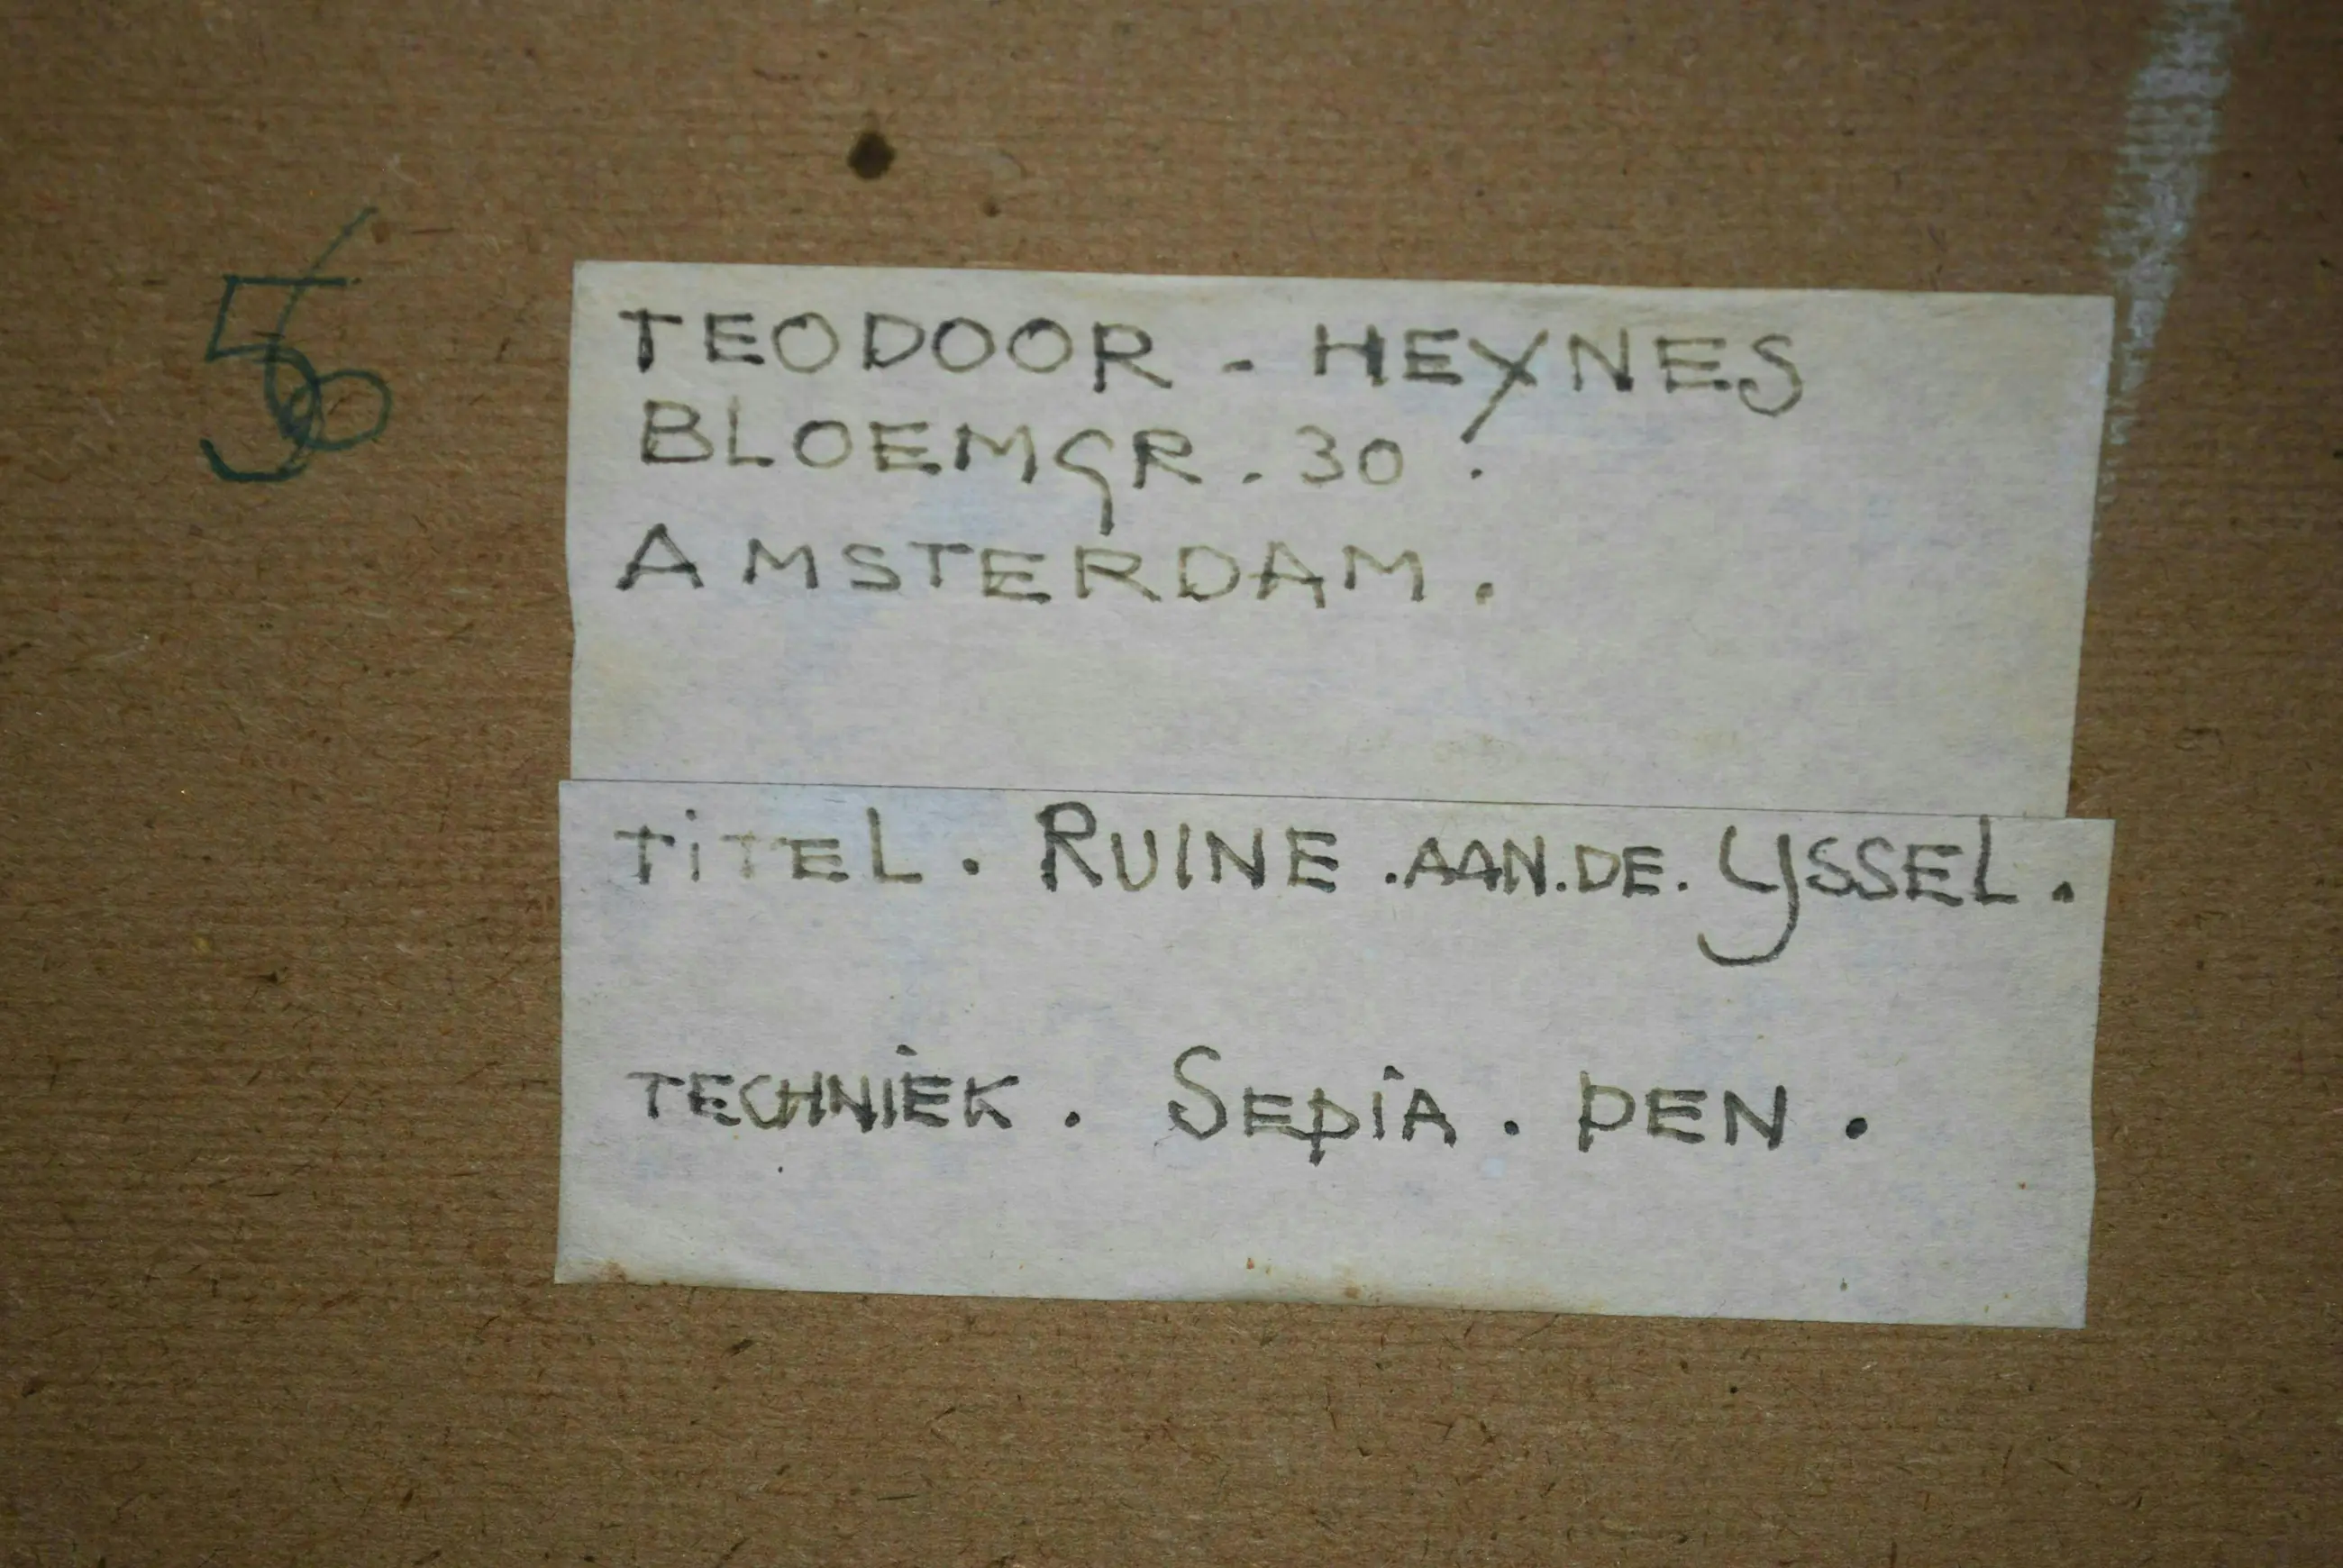 56
TEODOOR - HEYNES
BLOEMGR. 30.
AMSTERDAM.
TiTEL. RUINE .AAN.DE. YSSEL.
TECHNiEK. SEPiA. PEN.